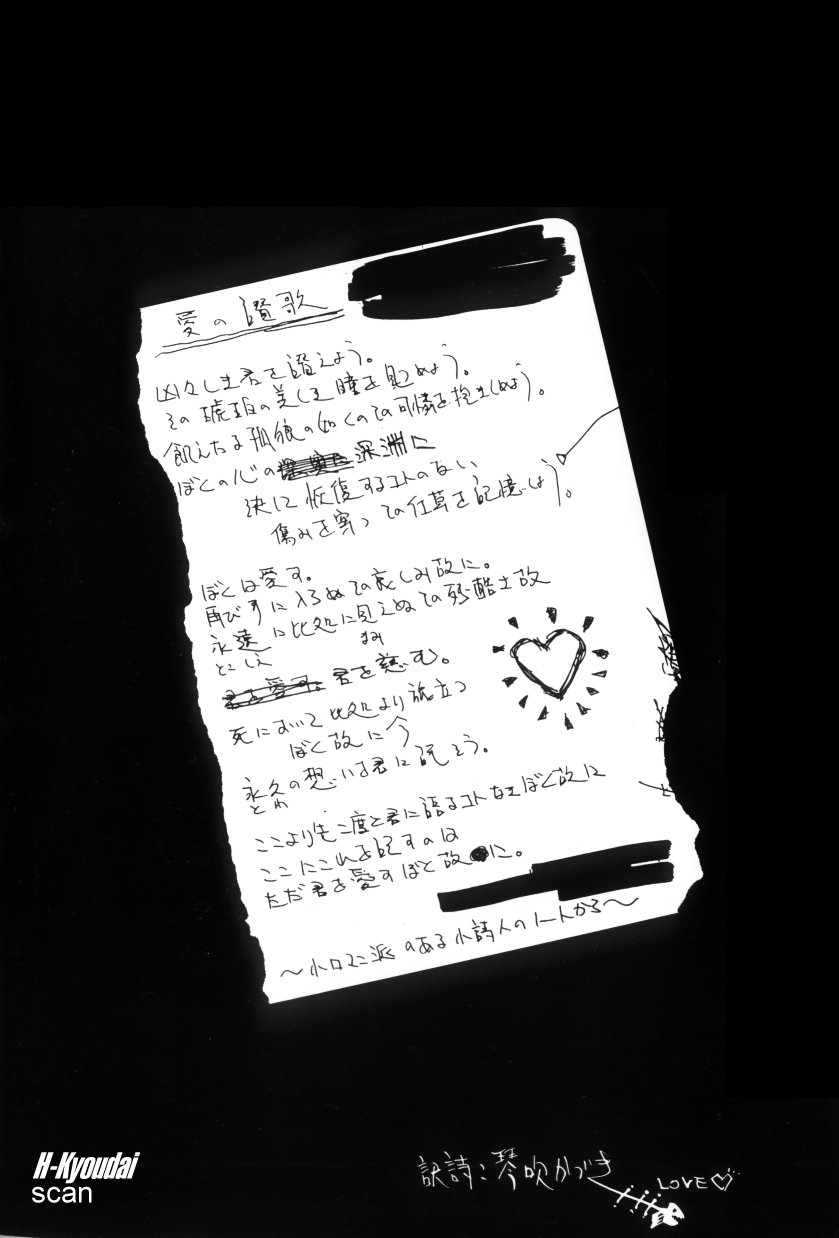 愛の讃歌
凶々しき君を讃えよう。
その琥珀の美しき瞳を見つめよう。
飢えたる孤狼の如くのその可憐を抱きしめよう。
ぼくの心の深淵に
決して恢復するコトのない
傷みを穿つその仕草を記憶しよう。
ぼくは愛す。
再び手に入らぬその哀しみ故に。
永遠に此処に見えぬその残酷さ故
とこしえ まみ
君を愛す。君を慈む。
死において此処より旅立つ
ぼく故に今
永久の想いを君に託そう。
とわ
ここよりも二度と君に語るコトなきぼく故に
ここにこれを記すのは
ただ君を愛すぼく故に。
〜小ロマン派のある小詩人のノートから〜
訳詩:琴吹かづき
LOVE♡
H-Kyoudai
scan